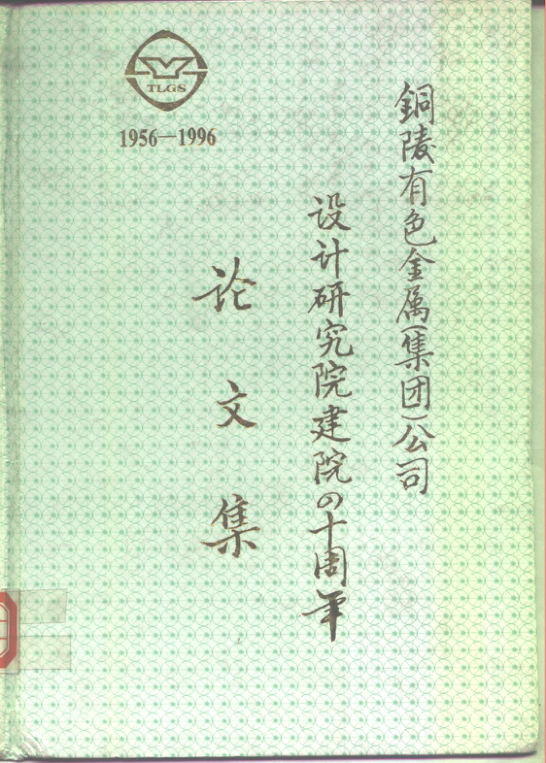 TLGS
1956—1996
銅陵有色金属(集团)公司
设计研究院建院の十周年
论文集